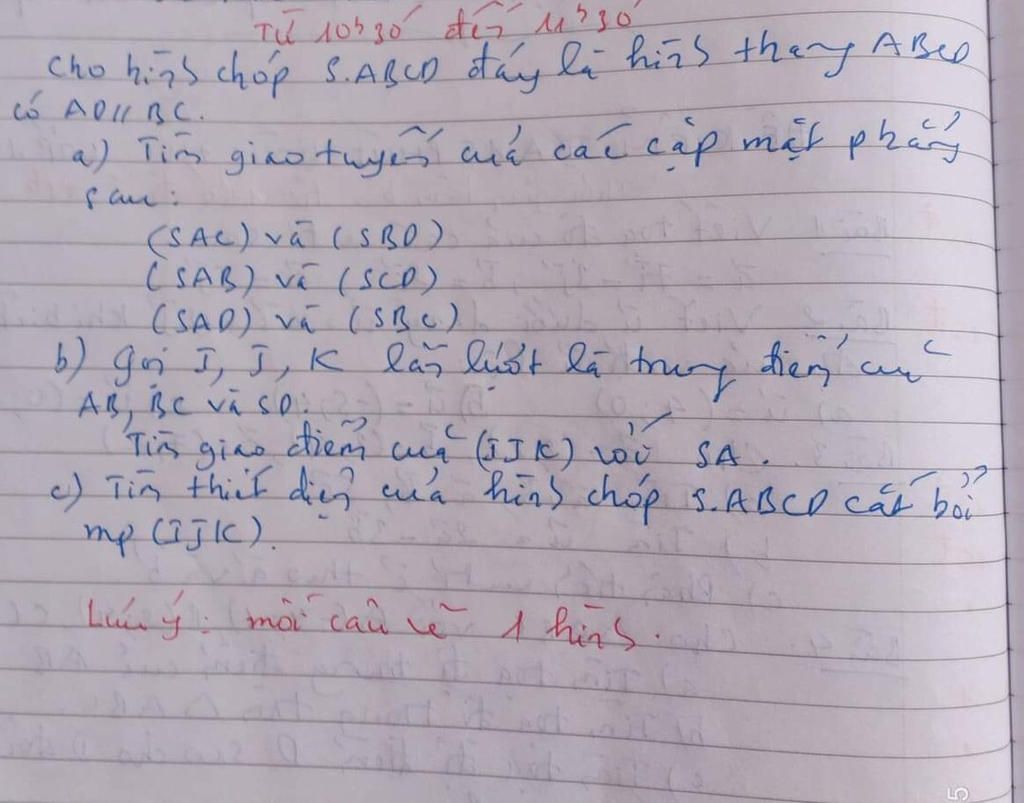 Từ 10h30 đến 11h30
Cho hình chóp S.ABCD đáy là hình thang ABCD
có AD // BC.
a) Tìm giao tuyến của các cặp mặt phẳng
sau:
(SAC) và (SBD)
(SAB) và (SCD)
(SAD) và (SBC)
b) Gọi I, J, K lần lượt là trung điểm của
AB, BC và SD.
Tìm giao điểm của (IJK) với SA.
c) Tìm thiết diện của hình chóp S.ABCD cắt bởi
mp (IJK).
Lưu ý: mỗi câu vẽ 1 hình.
5